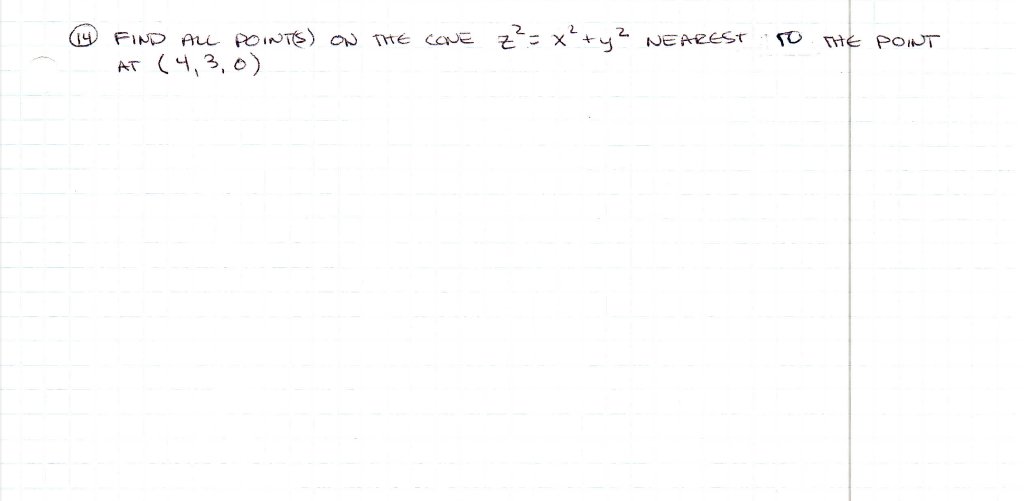 14 FIND ALL POINT(S) ON THE CONE z² = x² + y² NEAREST TO THE POINT
AT (4, 3, 0)